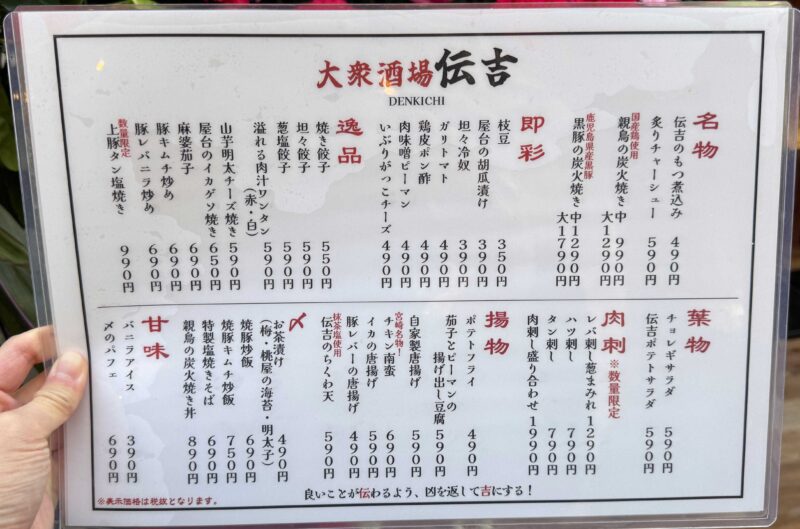 大衆酒場 伝吉
DENKICHI
名物
伝吉のもつ煮込み 490円
炙りチャーシュー 590円
国産鶏使用
親鳥の炭火焼き 中 990円
大1290円
鹿児島県産黒豚
黒豚の炭火焼き 中1290円
大1790円
即彩
枝豆 350円
屋台の胡瓜漬け 390円
坦々冷奴 390円
ガリトマト 490円
鶏皮ポン酢 490円
肉味噌ピーマン 490円
いぶりがっこチーズ 490円
逸品
焼き餃子 550円
坦々餃子 590円
葱塩餃子 590円
溢れる肉汁ワンタン(赤・白) 590円
山芋明太チーズ焼き 590円
屋台のイカゲソ焼き 650円
麻婆茄子 690円
豚キムチ炒め 690円
豚レバニラ炒め 690円
数量限定
上豚タン塩焼き 990円
葉物
チョレギサラダ 590円
伝吉ポテトサラダ 590円
肉刺 ※数量限定
レバ刺し葱まみれ 1290円
ハツ刺し 790円
タン刺し 790円
肉刺し盛り合わせ 1990円
揚物
ポテトフライ 490円
茄子とピーマンの
揚げ出し豆腐 590円
自家製唐揚げ 590円
宮崎名物!
チキン南蛮 690円
イカの唐揚げ 590円
豚レバーの唐揚げ 490円
抹茶塩使用
伝吉のちくわ天 590円
〆
お茶漬け 490円
(梅・桃屋の海苔・明太子)
焼豚炒飯 690円
焼豚キムチ炒飯 750円
特製塩焼きそば 690円
親鳥の炭火焼き丼 890円
甘味
バニラアイス 390円
〆のパフェ 690円
良いことが伝わるよう、凶を返して吉にする!
※表示価格は税抜となります。